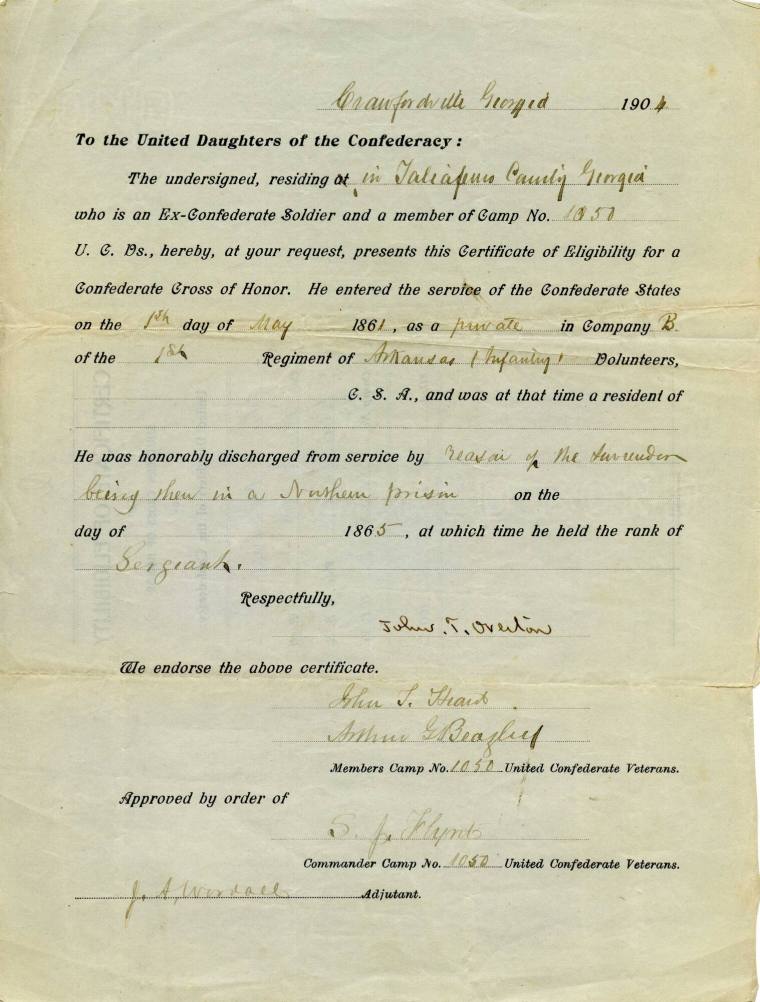 Crawfordville Georgia 1904
To the United Daughters of the Confederacy:
The undersigned, residing at in Taliaferro County Georgia
who is an Ex-Confederate Soldier and a member of Camp No. 1050
U. C. Vs., hereby, at your request, presents this Certificate of Eligibility for a
Confederate Cross of Honor. He entered the service of the Confederate States
on the 1st day of May 1861, as a private in Company B.
of the 1st Regiment of Arkansas (Infantry) Volunteers,
C. S. A., and was at that time a resident of
He was honorably discharged from service by reason of the surrender
being then in a Northern prison on the
day of 1865, at which time he held the rank of
Sergeant.
Respectfully,
John. T. Overton
We endorse the above certificate.
John S. Heard
Arthur G Beazley
Members Camp No. 1050 United Confederate Veterans.
Approved by order of
S. J. Flynt
Commander Camp No. 1050 United Confederate Veterans.
J. A. Adjutant.